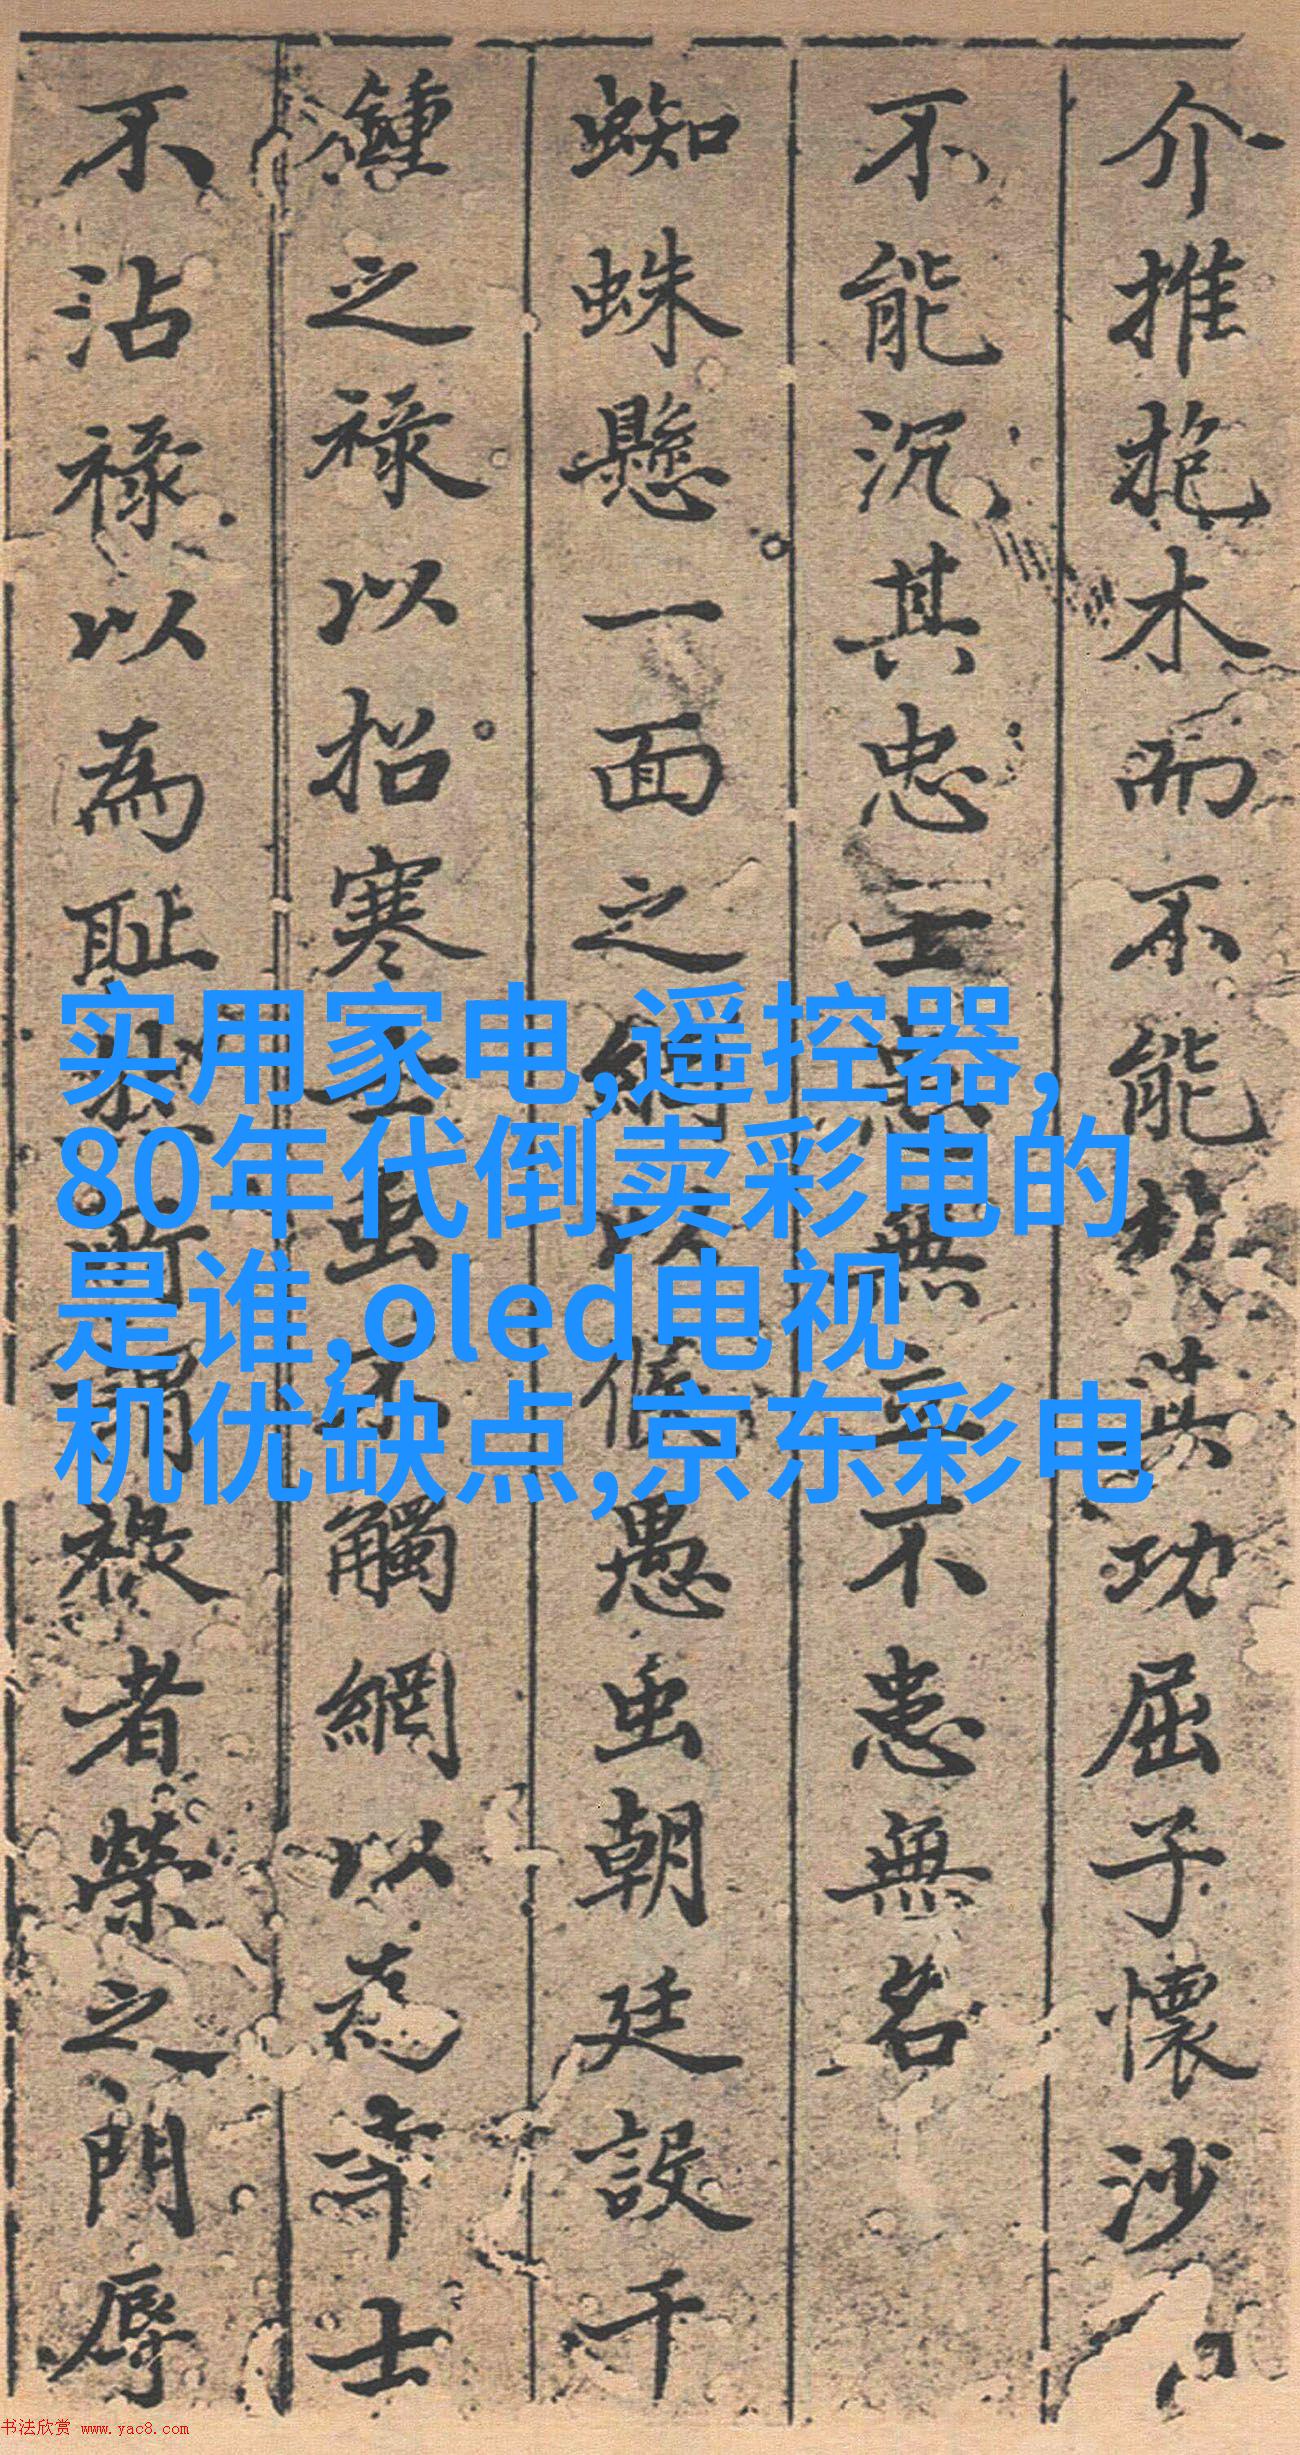 介推抱木而不能其功屈子懷沙
不能沉其忠士患無立不患無名
蜘蛛懸一面之網以候愚虫朝廷設千
鍾之祿以招寒士虫不觸網以為幸士
不沾祿以為恥然所謂祿者榮之門辱
实用家电,遥控器,
80年代倒卖彩电的
是谁,oled电视
机优缺点,京东彩电
书法欣赏 www.yac8.com